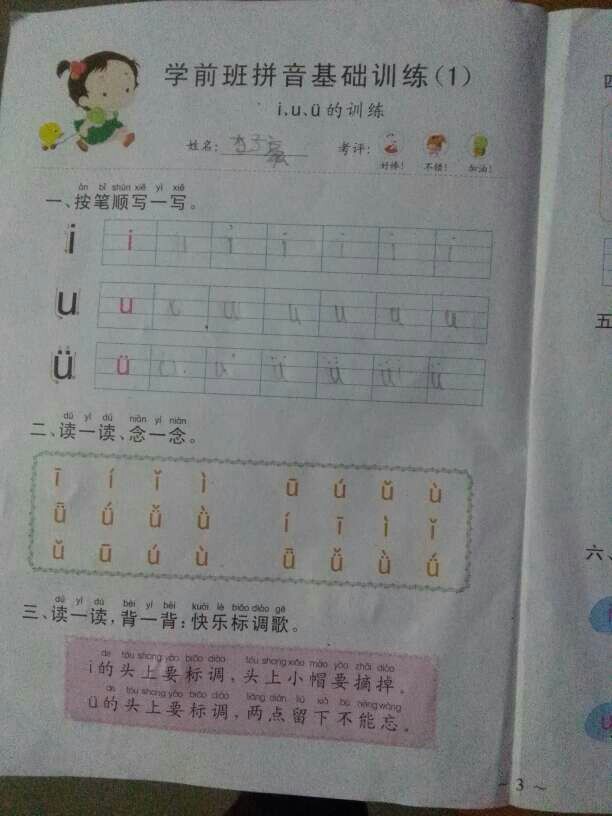 学前班拼音基础训练(1)
i、u、ü的训练
姓名： 考评：
好棒！ 不错！ 加油！
àn bǐ shùn xiě yi xiě
一、按笔顺写一写。
i i i i i i i
u u u u u u u
ü ü ü ü ü ü
dú yi dú niàn yi niàn
二、读一读、念一念。
ī í ǐ ì ū ú ǔ ù
ǖ ǘ ǚ ǜ í ī ì ǐ
ǔ ū ú ù ǖ ǚ ǜ ǘ
dú yi dú bèi yi bèi kuài lè biāo diào gē
三、读一读，背一背：快乐标调歌。
de tóu shang yào biāo diào tóu shang xiǎo mào yào zhāi diào
i的头上要标调，头上小帽要摘掉。
de tóu shang yào biāo diào liǎng diǎn liú xià bù néng wàng
ü的头上要标调，两点留下不能忘。
四
五
六、
~ 3 ~